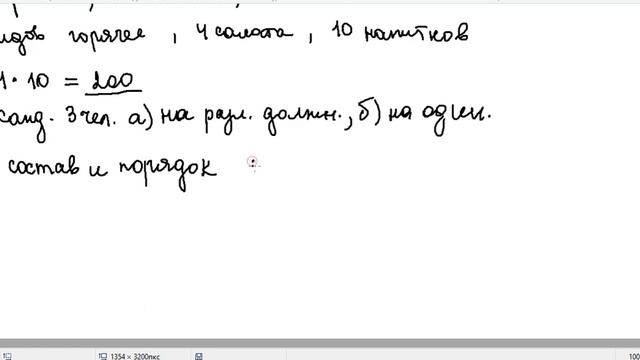 горячее, 4 салата, 10 напитков
· 10 = 200
канд. 3 чел. а) на разл. должн., б) на один.
состав и порядок
1354 × 3200пкс
100